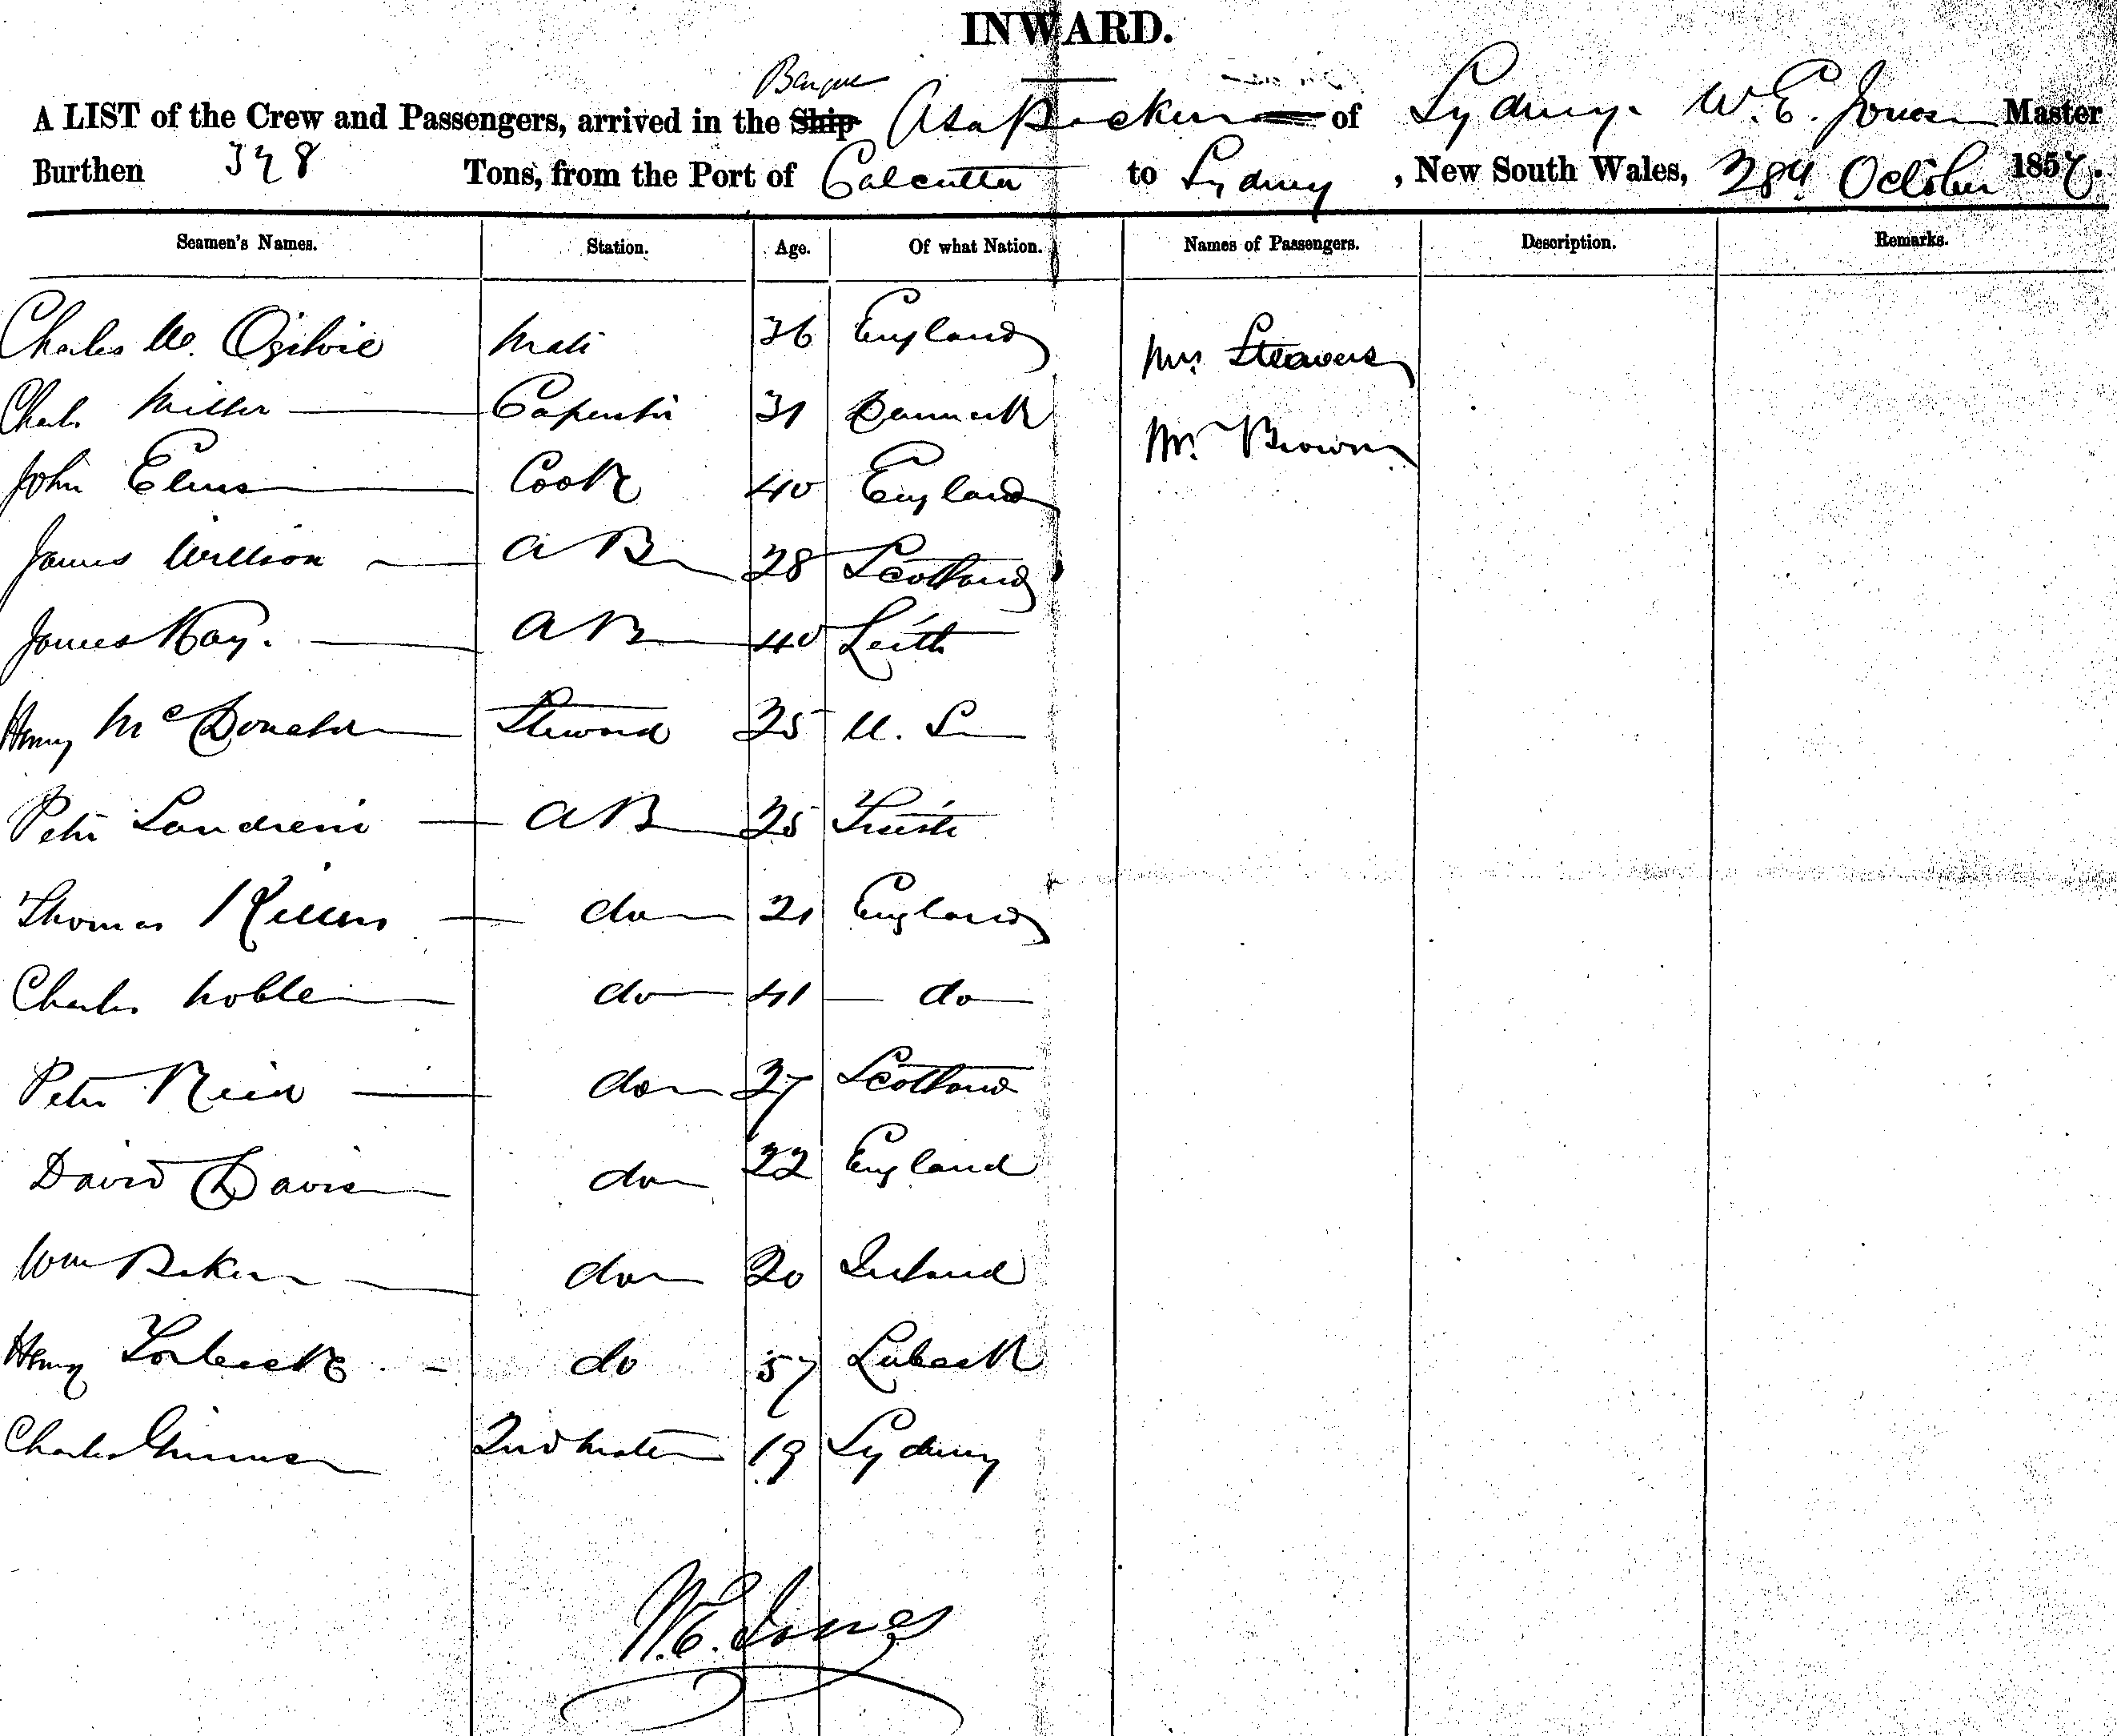 INWARD.
Barque
A LIST of the Crew and Passengers, arrived in the Ship Asa Packer of Sydney. W. E. Jones Master
Burthen 348 Tons, from the Port of Calcutta to Sydney, New South Wales, 28th October 1857.
Seamen's Names. Station. Age. Of what Nation. Names of Passengers. Description. Remarks.
Charles Ogilvie Mate 36 England Mrs Steavens
Charles Miller Carpenter 31 Denmark Mr Brown
John Elms Cook 40 England
James Willson A B 28 Scotland
James Kay. A B 40 Leith
Henry McDonald Steward 25 U. S
Peter Landreni A B 25 Trieste
Thomas do 21 England
Charles Noble do 41 do
Peter Reid do 27 Scotland
David Davis do 22 England
Wm Baker do 20 Ireland
Henry do 57 Lubeck
Charles 2nd Mate 19 Sydney
W. E. Jones